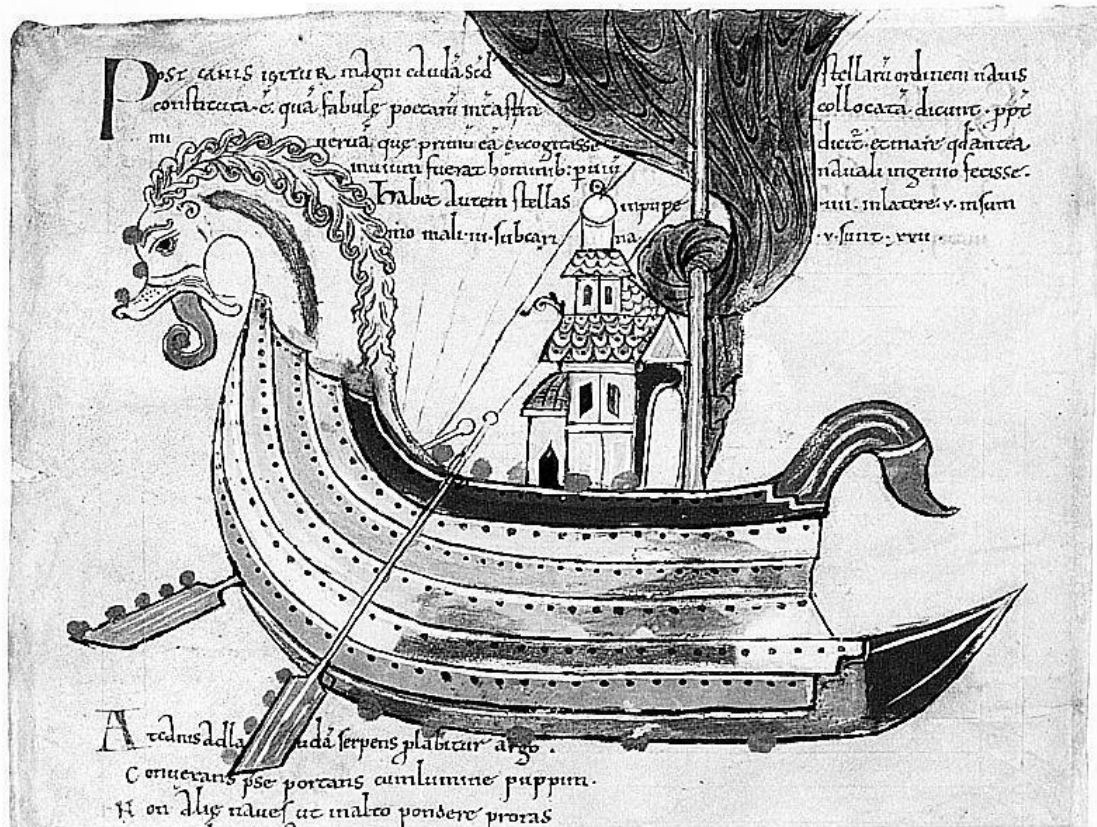 Post canis igitur magni caudā sed stellarū ordinem nauis
constituta · ē · quā fabule poetarū int̄ astra collocatā dicunt · ꝓpt̄
mi neruā que primū eā excogitasse dicit̄ · et mare qd̄ antea
inuium fuerat hominib: puiū nauali ingenio fecisse ·
habet autem stellas in puppe · iiii · in latere · v · in sum
mo mali · iii · sub cari na · v · sunt · xvii ·
At canis ad caudā serpens plabitur argo ·
Conuersans pse portans cum lumine puppim ·
Non alie naues ut in alto pondere proras